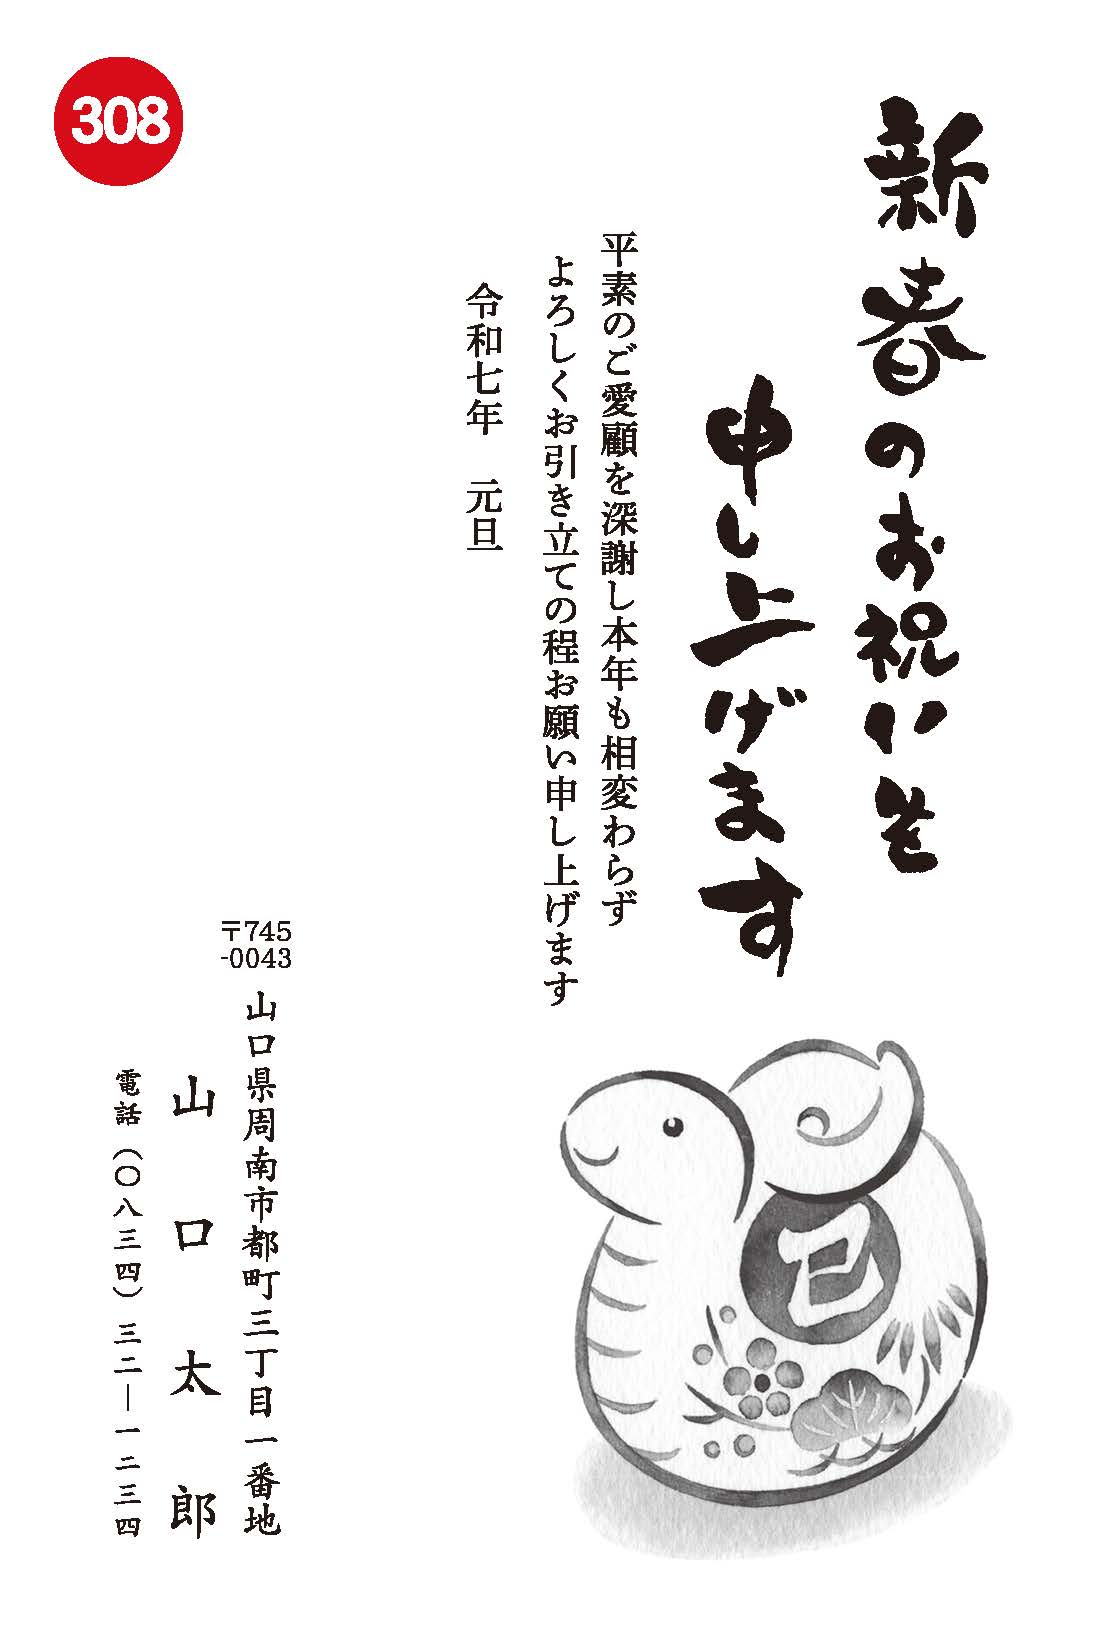 308
新春のお祝いを
申し上げます
平素のご愛顧を深謝し本年も相変わらず
よろしくお引き立ての程お願い申し上げます
令和七年　元旦
〒745
-0043
山口県周南市都町三丁目一番地
山口太郎
電話（〇八三四）三二―一二三四
巳